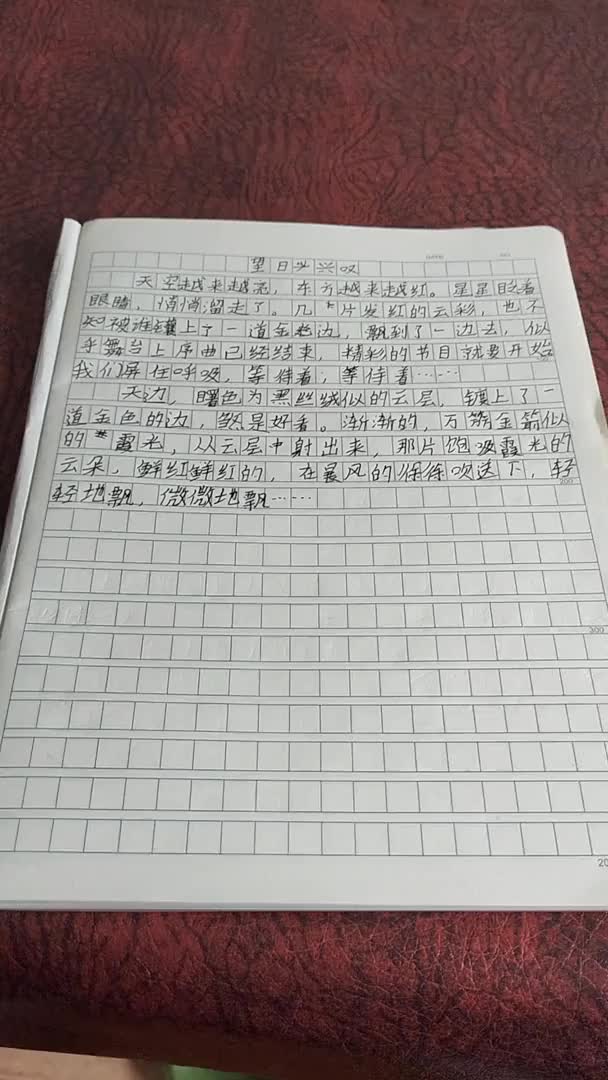 望日少兴叹
天空越来越亮,东方越来越红。星星眨着
眼睛,悄悄溜走了。几片发红的云彩,也不
知被谁镶上了一道金色边,飘到了一边去,似
乎舞台上序曲已经结束,精彩的节目就要开始
我们屏住呼吸,等待着;等待着……
天边,曙色为黑丝绒似的云层,镀上了一
道金色的边,煞是好看。渐渐的,万簇金箭似
的霞光,从云层中射出来,那片饱吸霞光的
云朵,鲜红鲜红的,在晨风的徐徐吹送下,轻
轻地飘,微微地飘……
200
300